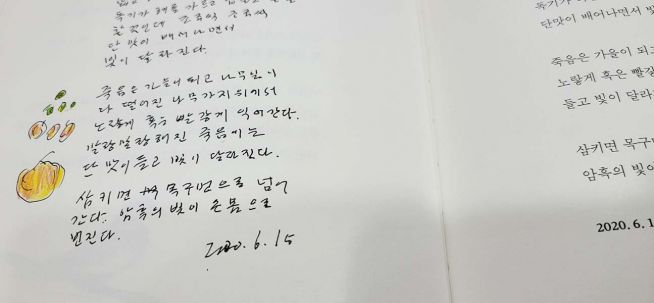 독기가 해를 가르고
할 것인데 조금씩 조금씩
단 맛이 배어나면서
빛이 달라진다.
죽음은 가을이 되고 나무잎이
다 떨어진 나무가지 위에서
노랗게 혹은 빨갛게 익어간다.
말랑말랑해진 죽음에는
단 맛이 들고 빛이 달라진다.
삼키면 목구멍으로 넘어
간다. 암흑의 빛이 온 몸으로
번진다.
2020. 6. 15
독기가
단맛이 배어나면서 빛
죽음은 가을이 되고
노랗게 혹은 빨갛
들고 빛이 달라
삼키면 목구
암흑의 빛이
2020. 6. 1